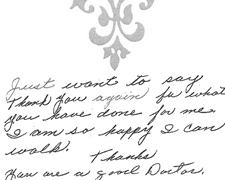 Just want to say
Thank You again for what
you have done for me.
I am so happy I can
walk.
Thanks
You are a good Doctor.